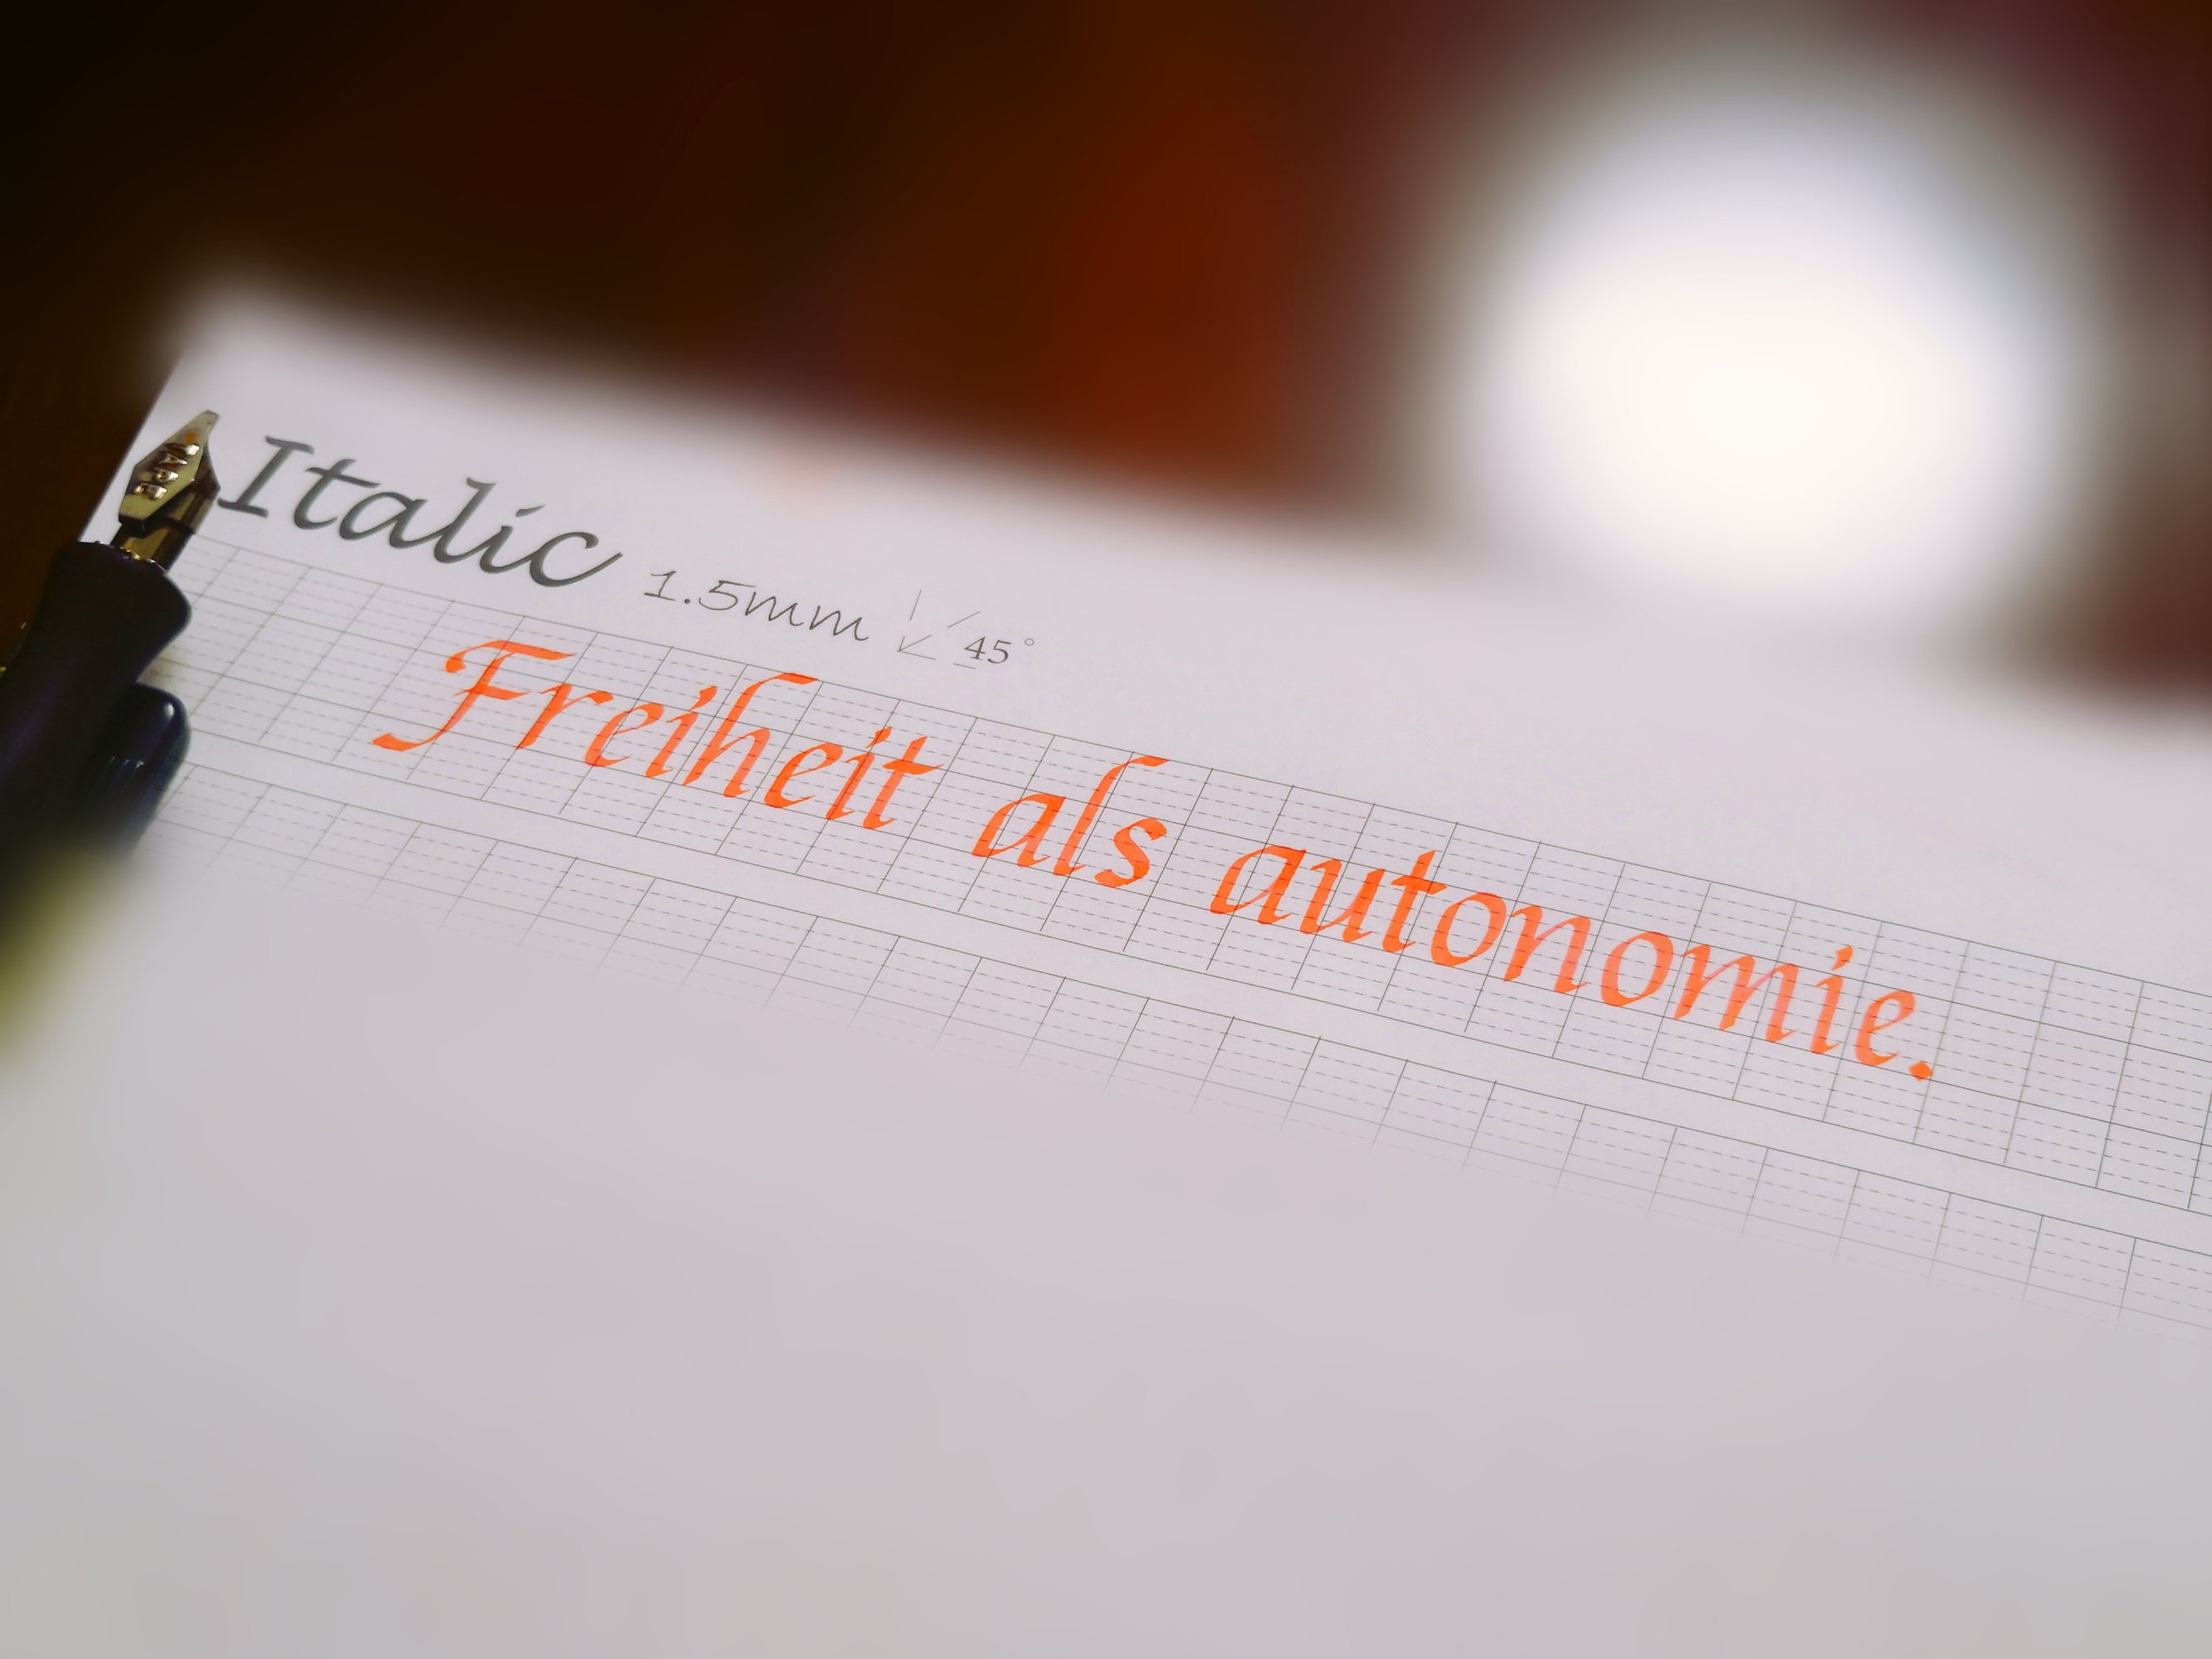 Italic 1.5mm 45°
Freiheit als autonomie.